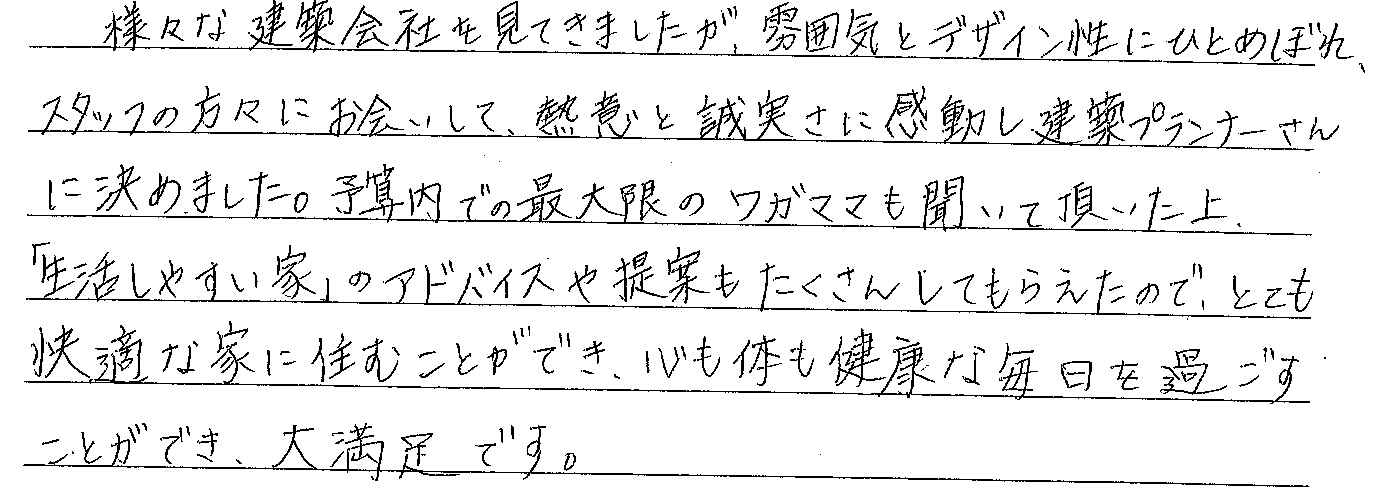 様々な建築会社を見てきましたが、雰囲気とデザイン性にひとめぼれ、
スタッフの方々にお会いして、熱意と誠実さに感動し建築プランナーさん
に決めました。予算内での最大限のワガママも聞いて頂いた上、
「生活しやすい家」のアドバイスや提案もたくさんしてもらえたので、とても
快適な家に住むことができ、心も体も健康な毎日を過ごす
ことができ、大満足です。